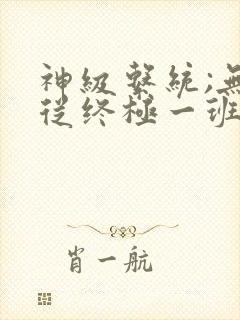 神級繫統;無
從終極一班
肖一航